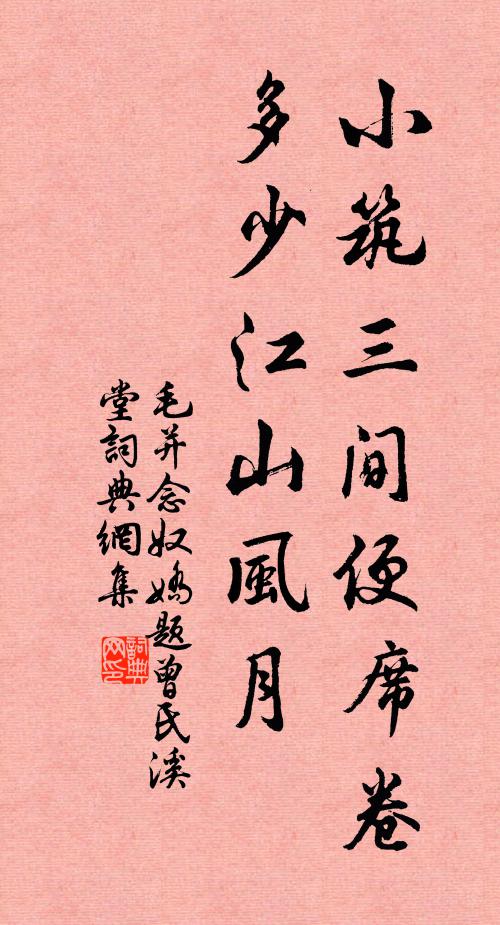 小筑三间便席卷
多少江山風月
毛并念奴嬌题曾氏溪
堂詞典網集
詞典网印